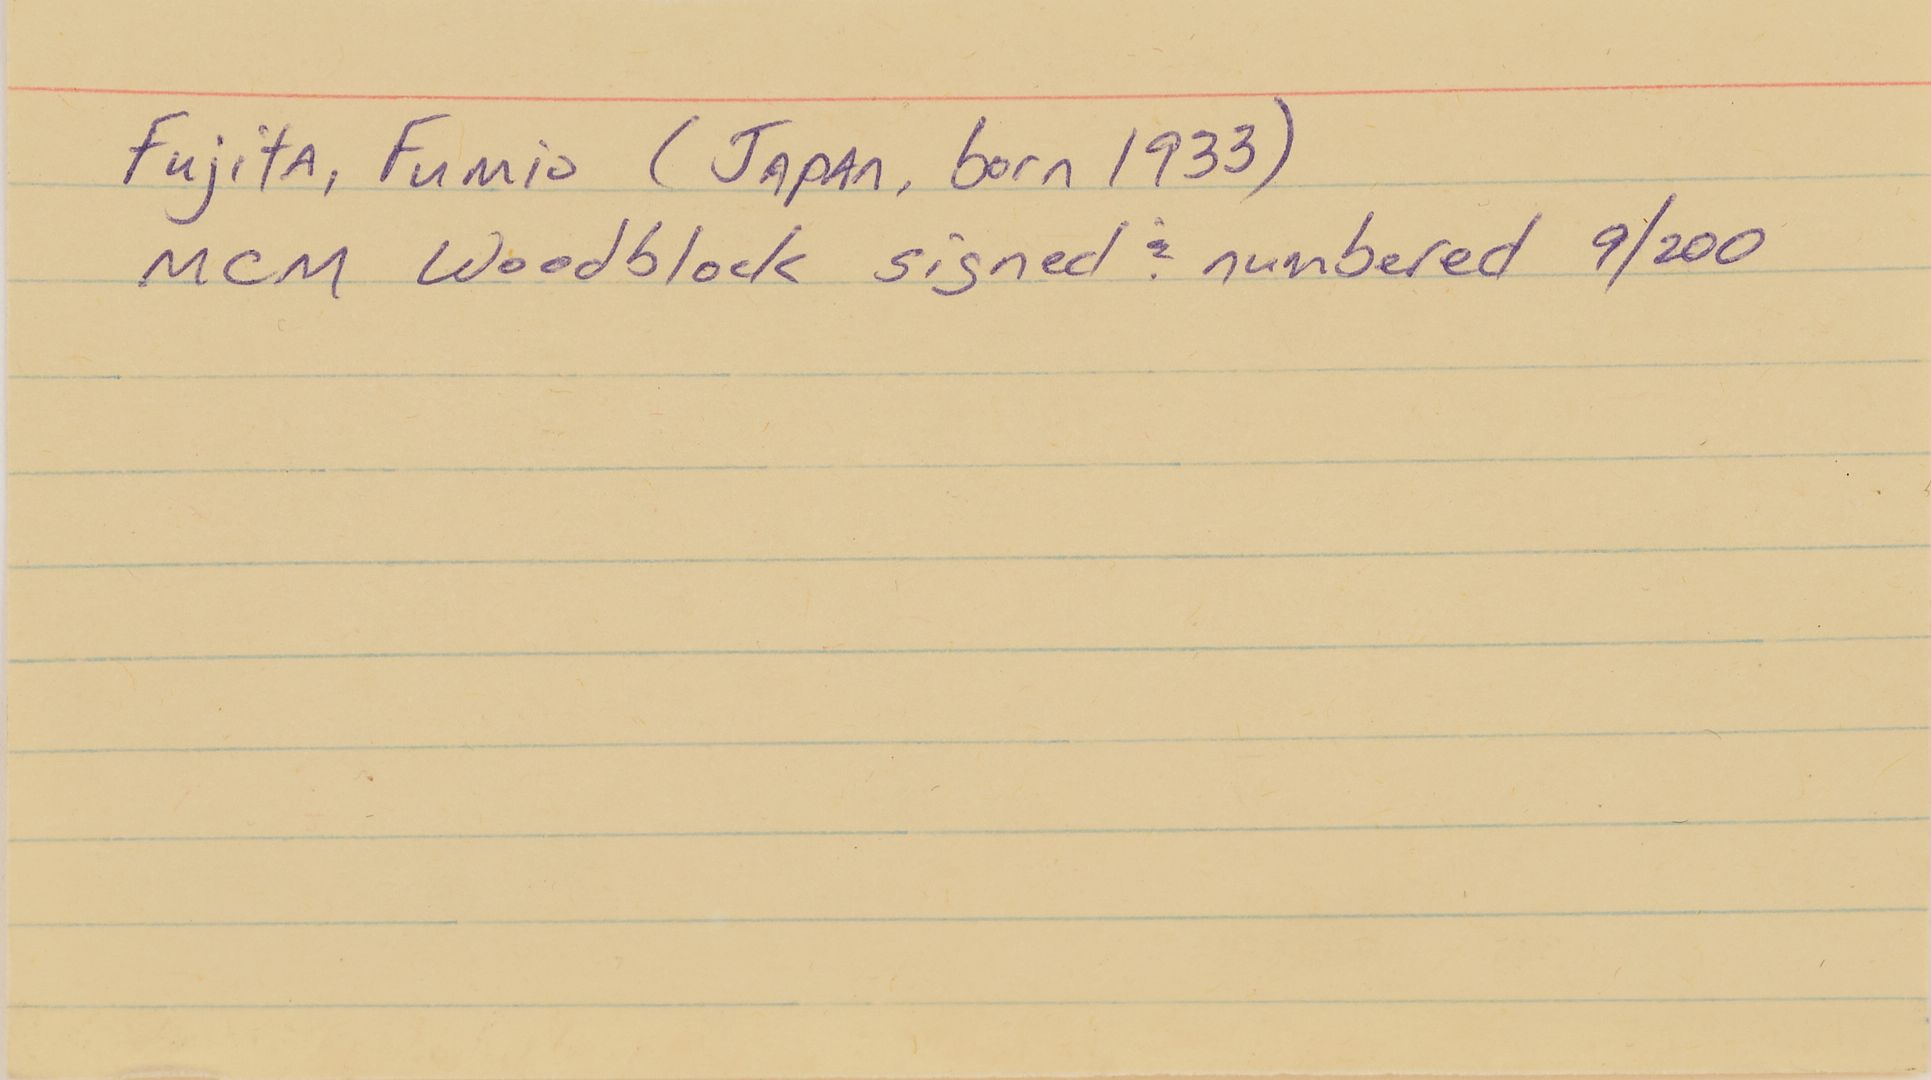 Fujita, Fumio (Japan, born 1933)
MCM Woodblock signed & numbered 9/200